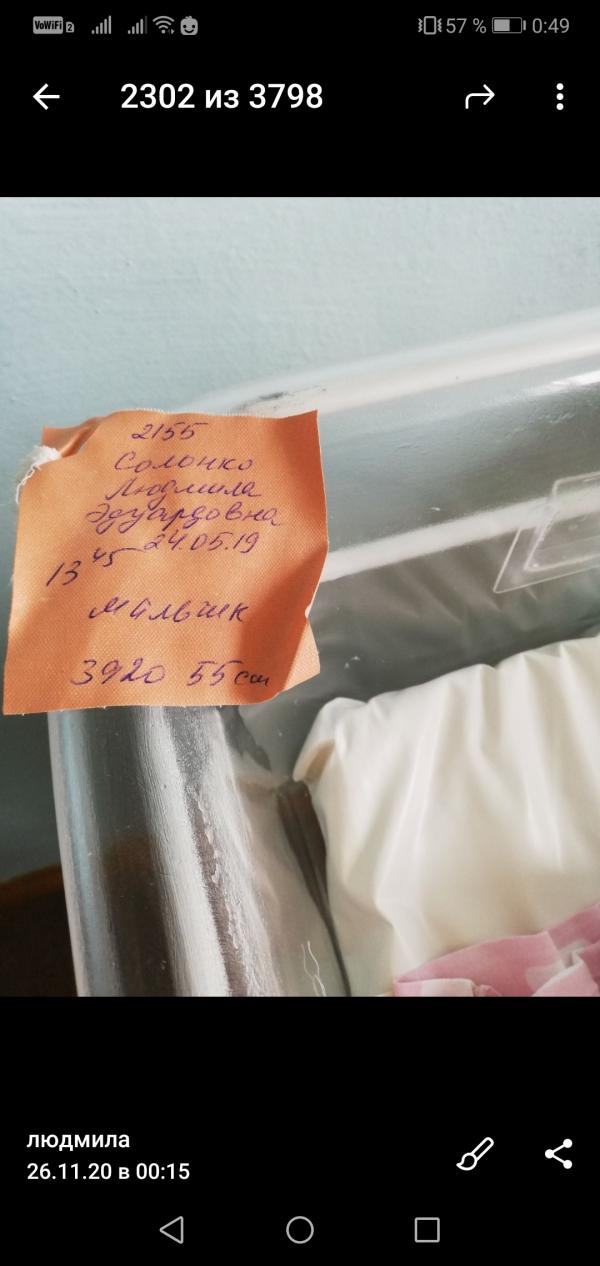 VoWiFi 2 57 % 0:49
2302 из 3798
2155
Солонко
Людмила
Эдуардовна
24.05.19
13 45
мальчик
3920 55 см
людмила
26.11.20 в 00:15